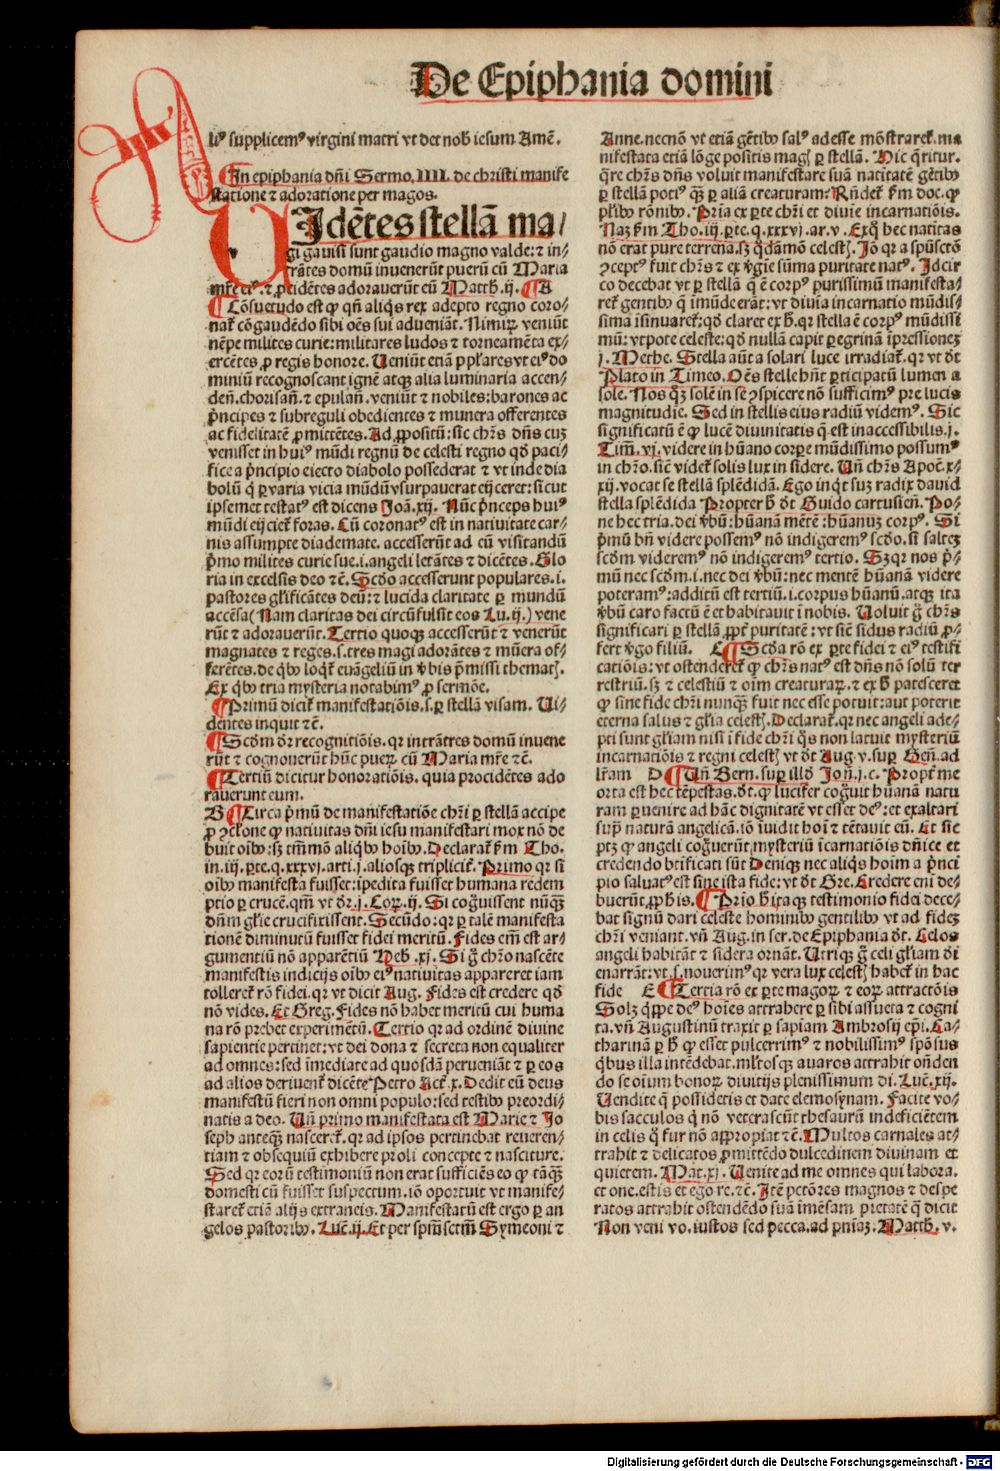 De Epiphania domini
liꝰ supplicemꝰ virgini matri vt det nob̄ iesum Amē.
¶ In epiphania dn̄i Sermo. IIII. de christi manife
statione ⁊ adoratione per magos.
UIdētes stellā ma/
gi gauisi sunt gaudio magno valde: ⁊ in/
trātes domū inuenerūt puerū cū Maria
mr̄e eiꝰ. ⁊ ꝓcidētes adorauerūt eū Matth̄. ij. ¶ A
¶ Cōsuetudo est ꝙ qn̄ aliq̄s rex adepto regno coro-
nat̄ cōgaudēdo sibi oēs sui adueniāt. Nimiꝝ veniūt
nēpe milites curie: militares ludos ⁊ torneamēta ex/
ercētes ꝓ regis honore. Ueniūt etiā ppl̄ares vt eiꝰ do
miniū recognoscant ignē atqꝫ alia luminaria accen/
den̄. chorisan̄. ⁊ epulan̄. veniūt ⁊ nobiles: barones ac
pͥncipes ⁊ subreguli obedientes ⁊ munera offerentes
ac fidelitatē ꝓmittētes. Ad ꝓpositū: sic chr̄s dn̄s cuꝫ
venisset in huiꝰ mūdi regnū de celesti regno qd̄ paci/
fice a pͥncipio eiecto diabolo possederat ⁊ vt inde dia
bolū q̄ ꝑ varia vicia mūdū vsurpauerat eijceret: sicut
ipsemet testatꝰ est dicens Joā. xij. Nūc pͥnceps huiꝰ
mūdi eijciet̄ foras. Cū coronatꝰ est in natiuitate car/
nis assumpte diademate. accesserūt ad eū visitandū
pͥmo milites curie sue .i. angeli letātes ⁊ dicētes. Glo
ria in excelsis deo ⁊c̄. Scd̄o accesserunt populares .i.
pastores gl̄ificātes deū: ⁊ lucida claritate ꝑ mundū
accēsa (Nam claritas dei circūfulsit eos Lu. ij.) vene
rūt ⁊ adorauerūt. Tertio quoqꝫ accesserūt ⁊ venerūt
magnates ⁊ reges .s. tres magi adorātes ⁊ mūera of/
ferētes. de qͥbꝰ loqt̄ euāgeliū in v̄bis pͥmissi themat̄.
Ex qͥbꝰ tria mysteria notabimꝰ ꝓ sermōe.
¶ Primū dicit̄ manifestatiōis .s. ꝑ stellā visam. Ui/
dentes inquit ⁊c̄.
¶ Scd̄m dr̄ recognitiōis. qr intrātes domū inuene
rūt ⁊ cognouerūt hūc pueꝝ cū Maria mr̄e ⁊c̄.
¶ Tertiū dicitur honoratiōis. quia procidētes ado
rauerunt eum.
B ¶ Circa pͥmū de manifestatiōe chr̄i ꝑ stellā accipe
ꝓ ꝯclone ꝙ natiuitas dn̄i iesu manifestari mox nō de
buit oībꝰ: sꝫ tm̄ aliqͥbꝰ hoībꝰ. Declarat̄ ẜm Tho.
in .iij. ꝑte. q. xxxvj. arti. j. aliosqꝫ triplicit̄. Primo qr si
oībꝰ manifesta fuisset: īpedita fuisset humana redem
ptio ꝑ crucē. qm̄ vt dr̄. j. Coꝝ. ij. Si cogͦuissent nūqꝫ
dn̄m gl̄ie crucifixissent. Secūdo: qr ꝑ talē manifesta
tionē diminutū fuisset fidei meritū. Fides em̄ est ar/
gumentū nō apparētiū Heb. xj. Si g̊ chr̄o nascēte
manifestis indicijs oībꝰ eiꝰ natiuitas appareret iam
tolleret̄ rō fidei. qr vt dicit Aug. Fides est credere qd̄
nō vides. Et Greg. Fides nō habet meritū cui huma
na rō prebet experimētū. Tertio qr ad ordinē diuine
sapientie pertinet: vt dei dona ⁊ secreta non equaliter
ad omnes: sed īmediate ad quosdā perueniāt ⁊ ꝑ eos
ad alios deriuent̄ dicēte Petro Act̄. x. Dedit eū deus
manifestū fieri non omni populo: sed testibꝰ preordi/
natis a deo. Un̄ primo manifestata est Marie ⁊ Jo
seph anteqꝫ nasceret̄. qr ad ipsos pertinebat reueren/
tiam ⁊ obsequiū exhibere ꝓli concepte ⁊ nasciture.
Sed qr eorū testimoniū non erat sufficiēs eo ꝙ tāqꝫ
domesti cū fuisset suspectum. iō oportuit vt manife/
staret̄ etiā alijs extraneis. Manifestatū est ergo ꝑ an
gelos pastoribꝰ. Luc̄. ij. Et per spm̄sctm̄ Symeoni ⁊
Anne. necnō vt etiā gētibꝰ salꝰ adesse mōstraret̄. ma
nifestata etiā lōge positis maḡ ꝑ stellā. Hic q̄ritur.
q̄re chr̄s dn̄s voluit manifestare suā natiuitatē gētibꝰ
ꝑ stellā potiꝰ qꝫ ꝑ aliā creaturam: Rn̄det̄ ẜm doc. ꝙ
pl̄ibꝰ rōnibꝰ. Pria ex ꝑte chr̄i et diuie incarnatiōis.
Naꝫ ẜm Tho. iij. ꝑte. q. xxxvj. ar. v. Exq̄ hec natiuitas
nō erat pure terrena. sꝫ q̄dāmō celest̄. Jō qr a spūsctō
ꝯceptꝰ fuit chr̄s ⁊ ex v̄gīe sūma puritate natꝰ. Jdcir
co decebat vt ꝑ stellā q̄ ē corpꝰ purissimū manifesta/
ret̄ gentibꝰ q̄ īmūde erāt: vt diuīa incarnatio mūdis/
sima īsinuaret̄: qd̄ claret ex h̄. qr stella ē corpꝰ mūdissi
mū: vtpote celeste: qd̄ nullā capit ꝑegrinā īpressioneꝫ
j. Methe. Stella aūt a solari luce irradiat̄. qr vt dt̄
Plato in Timeo. Oēs stelle hn̄t ꝑticipatū lumen a
sole. Nos q̄ꝫ solē in se ꝯspicere nō sufficimꝰ pre lucis
magnitudie. Sed in stellis eius radiū videmꝰ. Sic
significatū ē ꝙ lucē diuinitatis q̄ est inaccessibilis. j.
Tim̄. vj. videre in hūano corpꝑe mūdissimo possumꝰ
in chr̄o. sicut̄ videt̄ solis lux in sidere. Un̄ chr̄s Apoc̄. x-
xij. vocat se stellā splēdidā. Ego inq̄t suꝫ radix dauid
stella splēdida Propter h̄ dt̄ Guido cartusien̄. Po/
ne hec tria. dei v̄bū: hūanā mētē: hūanuꝫ corpꝰ. Si
pͥmū bn̄ videre possemꝰ nō indigeremꝰ scd̄o. si salteꝫ
scd̄m videremꝰ nō indigeremꝰ tertio. Sꝫ qr nos pͥ-
mū nec scd̄m .i. nec dei v̄bū: nec mentē hūanā videre
poteramꝰ: additū est tertiū .i. corpus hūanū. atqꝫ ita
v̄bū caro factū ē et habitauit ī nobis. Uoluit g̊ chr̄s
significari ꝑ stellā ꝓpt̄ puritatē: vt sic̄ sidus radiū ꝓ/
fert v̄go filiū. C ¶ Scd̄a rō ex ꝑte fidei ⁊ eiꝰ testifi
catiōis: vt ostenderet̄ ꝙ chr̄s natꝰ est dn̄s nō solū ter
restriū. sꝫ ⁊ celestiū ⁊ oīm creaturaꝝ. ⁊ ex h̄ patesceret
ꝙ sine fide chr̄i nunqꝫ fuit nec esse potuit: aut poterit
eterna salus ⁊ gl̄ia celest̄. Declarat̄. qr nec angeli ade/
pti sunt gl̄iam nisi ī fide chr̄i q̄s non latuit mysteriū
incarnatiōis ⁊ regni celest̄ vt dt̄ Aug. v. suꝑ Gen̄. ad
lr̄am D ¶ Un̄ Bern. suꝑ illd̄ Jon̄. j. c. Propt̄ me
orta est hec tēpestas. dt̄. ꝙ lucifer cogͦuit hūanā natu
ram ꝑuenire ad hāc dignitatē vt esset deꝰ: et exaltari
supꝑ naturā angelicā. iō īuidit hoī ⁊ tētauit eū. Et sic
ptꝫ ꝙ angeli cogͦuerūt mysteriū īcarnatiōis dn̄ice et
credendo btificati sūt Deniqꝫ nec aliq̄s hoīm a pͥnci
pio saluatꝰ est sine ista fide: vt dt̄ Gre. Credere eni de/
buerūt ꝓph̄is. ¶ Prīo h̄ itaqꝫ testimonio fidei dece/
bat signū dari celeste hominibꝰ gentilibꝰ vt ad fideꝫ
chr̄i veniant. vn̄ Aug. in ser. de Epiphania dt̄. Celos
angeli habitāt ⁊ sidera ornāt. Utriqꝫ g̊ celi gl̄iam di
enarrāt: vt .s. nouerimꝰ qr vera lux celest̄ habet̄ in hac
fide E ¶ Tertia rō ex ꝑte magoꝝ ⁊ eoꝝ attractōis
Solꝫ q̄ꝑpe deꝰ hoīes attrahere ꝑ sibi assueta ⁊ cogni
ta. vn̄ Augustinū traxit ꝑ sapiam Ambrosij epi. Ca/
tharinā ꝑ h̄ ꝙ esset pulcerrimꝰ ⁊ nobilissimꝰ spōsus
q̄bus illa intēdebat. ml̄tosqꝫ auaros attrahit on̄den
do se oīum bonoꝝ diuitijs plenissimum di. Luc̄. xij.
Uendite q̄ possidetis et date elemosynam. Facite vo/
bis sacculos q̄ nō veterascūt thesaurū indeficiētem
in celis q̄ fur nō appropiat ⁊c̄. Multos carnales at/
trahit ⁊ delicatos ꝓmittēdo dulcedinem diuinam et
quietem. Mat. xj. Uenite ad me omnes qui labora.
et one. estis et ego re. ⁊c̄. Jtē pctōres magnos ⁊ despe
ratos attrahit ostendēdo suā īmēsam pietatē q̄ dicit
Non veni vo. iustos sed pecca. ad pn̄iaꝫ. Matth̄. v.
Digitalisierung gefördert durch die Deutsche Forschungsgemeinschaft - DFG